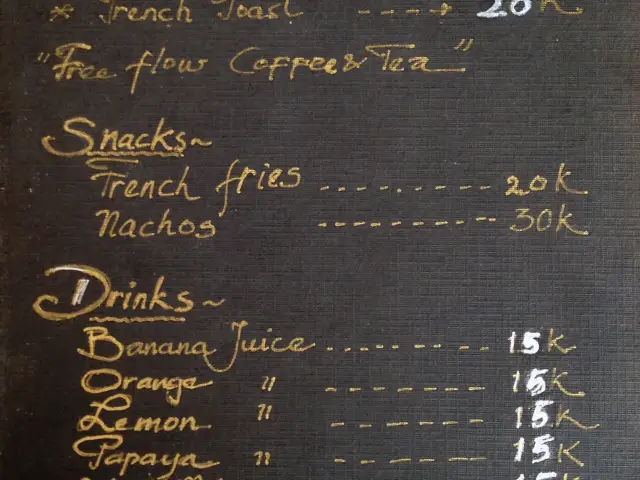 * French Toast ----→ 20K
"Free flow Coffee & Tea"
Snacks~
French fries ---------- 20K
Nachos ---------- 30K
Drinks~
Banana Juice --------- 15K
Orange " ------- 15K
Lemon " ------- 15K
Papaya " ------- 15K
15K